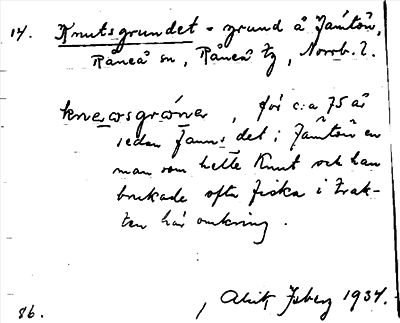 14. Knutsgrundet = grund å Jämtön,
Råneå sn, Råneå tg, Norrb. l.
för c:a 75 år
sedan fanns det i Jämtön en
man som hette Knut och han
brukade ofta fiska i trak-
ten här omkring.
86. Alrik Isberg 1937.